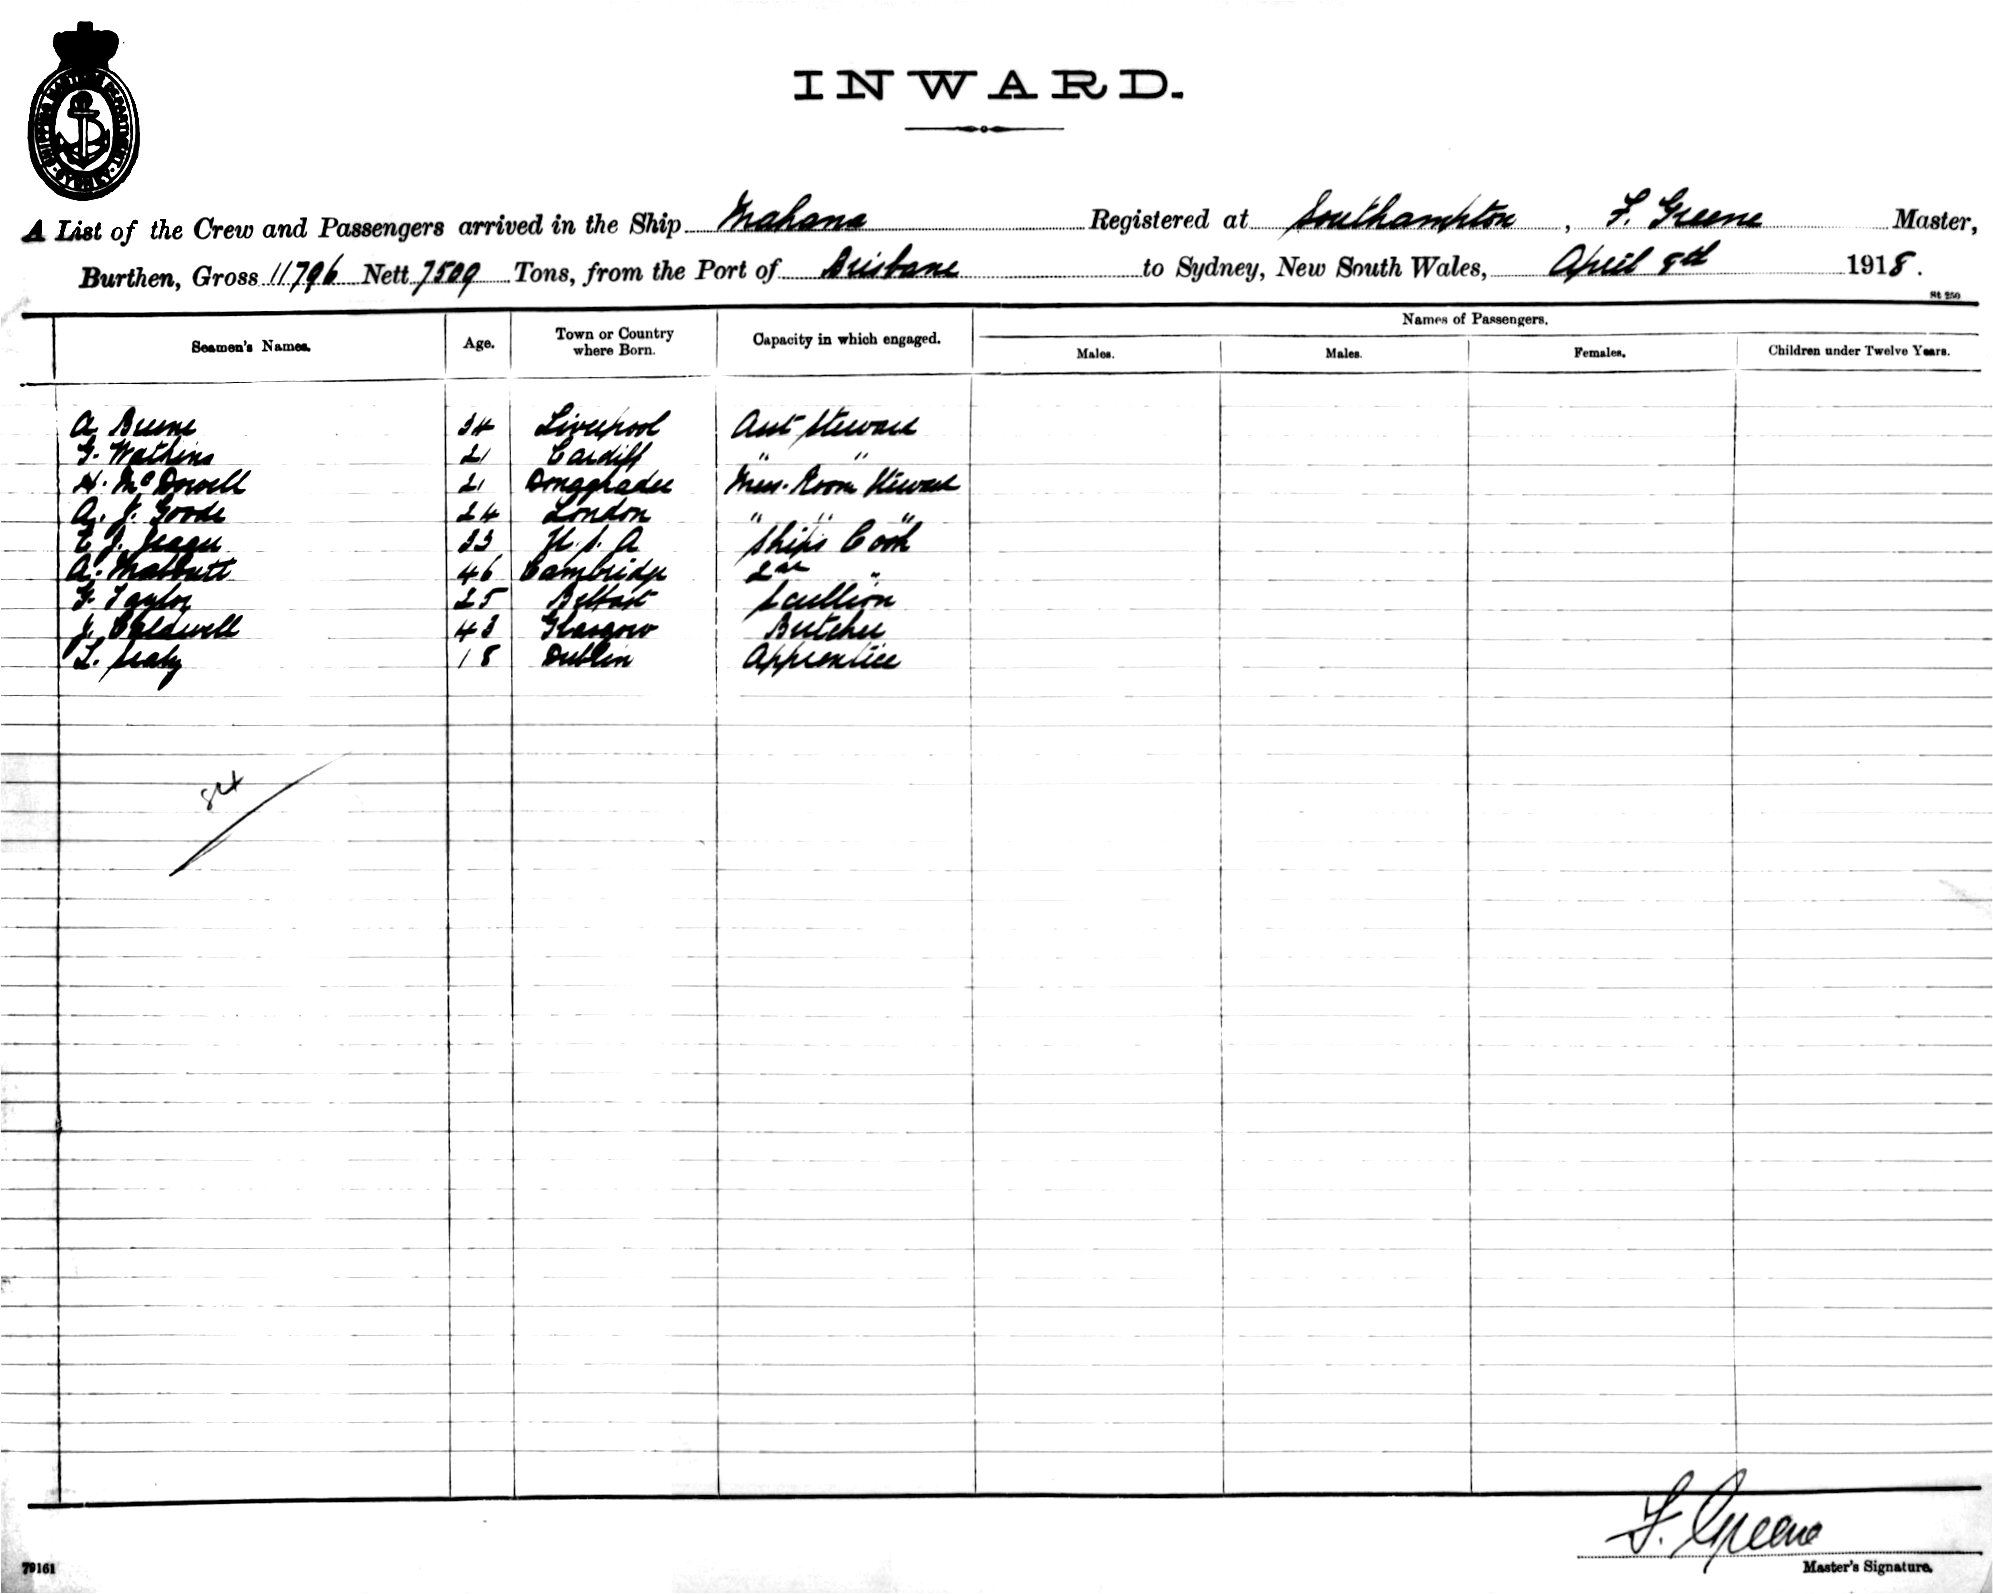 SHIPPING MASTER'S DEPARTMENT. SYDNEY.
INWARD.
A List of the Crew and Passengers arrived in the Ship Mahana Registered at Southampton, F. Greene Master,
Burthen, Gross 11796 Nett 7509 Tons, from the Port of Brisbane to Sydney, New South Wales, April 8th 1918.
St 250
Seamen's Names. Age. Town or Country where Born. Capacity in which engaged. Names of Passengers.
Males. Males. Females. Children under Twelve Years.
A. 34 Liverpool Asst Steward
G. Watkins 21 Cardiff " "
H. McDowell 21 Donaghadee Mess-Room Steward
A. J. Goode 24 London " " "
E J. 33 U.S.A Ships Cook
A. Mabbutt 46 Cambridge 2nd "
G. Taylor 25 Belfast Scullion
J. Caldwell 43 Glasgow Butcher
L. Healy 18 Dublin Apprentice
84
F. Greene
Master's Signature.
79161